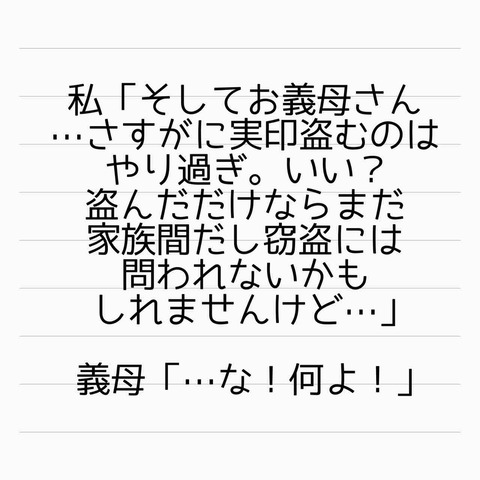 私「そしてお義母さん
…さすがに実印盗むのは
やり過ぎ。いい？
盗んだだけならまだ
家族間だし窃盗には
問われないかも
しれませんけど…」
義母「…な！何よ！」